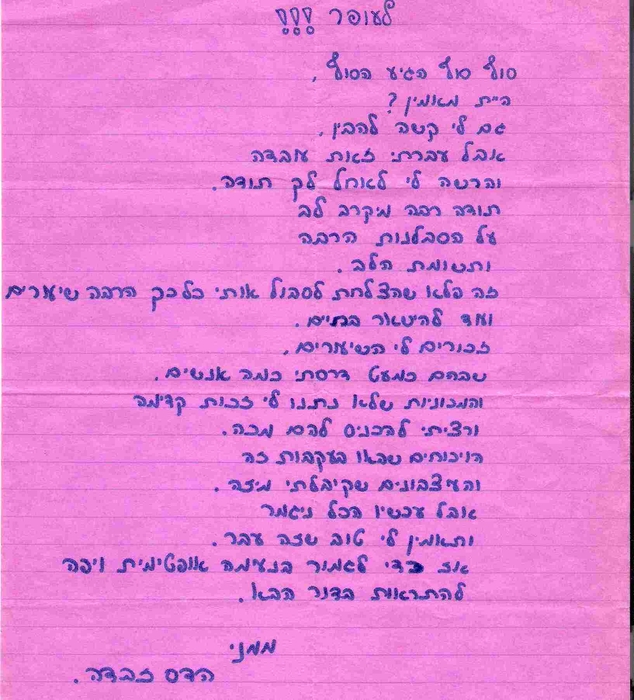 לעופר !!!
סוף סוף הגיע הסוף,
היית מאמין?
גם לי קשה להבין,
אבל עברתי זאת עובדה
והרשה לי לאחל לך תודה.
תודה רבה מיקרב לב
על הסבלנות הרבה
ותשומת הלב.
זה פלא שהצלחת לסבול אותי כל כך הרבה שיעורים
ועוד להישאר בחיים.
זכורים לי השיעורים,
שבהם כמעט דרסתי כמה אנשים.
והמכוניות שלא נתנו לי זכות קדימה
ורציתי להכניס להם מכה.
הויכוחים שבאו בעקבות זה
והעיצבונים שקיבלתי מיזה.
אבל עכשיו הכל ניגמר
ותאמין לי טוב שזה עבר.
אז כדי לגמור בנעימה אופטימית ויפה
להתראות בדור הבא.
ממני
הדס זבדה.